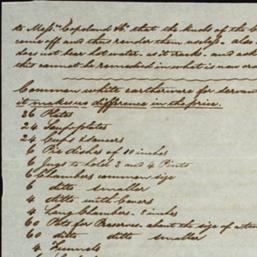 to Mess.rs Copeland & Co that the knobs of the C
come off and thus render them useless - also
does not bear hot water, as it cracks - and ask
this cannot be remedied in what is now or
Common white earthenware for servan
it makes no difference in the price.
36 Plates
24 Soup plates
24 Cups & Saucers
6 Pie dishes of 10 inches
6 Jugs to hold 3 and 4 Pints
6 Chambers common size
6 ditto smaller
4 ditto with Covers
4 Long Chambers - inches
60 Pots for Preserves about the size of
60 ditto ditto smaller
4 Funnels